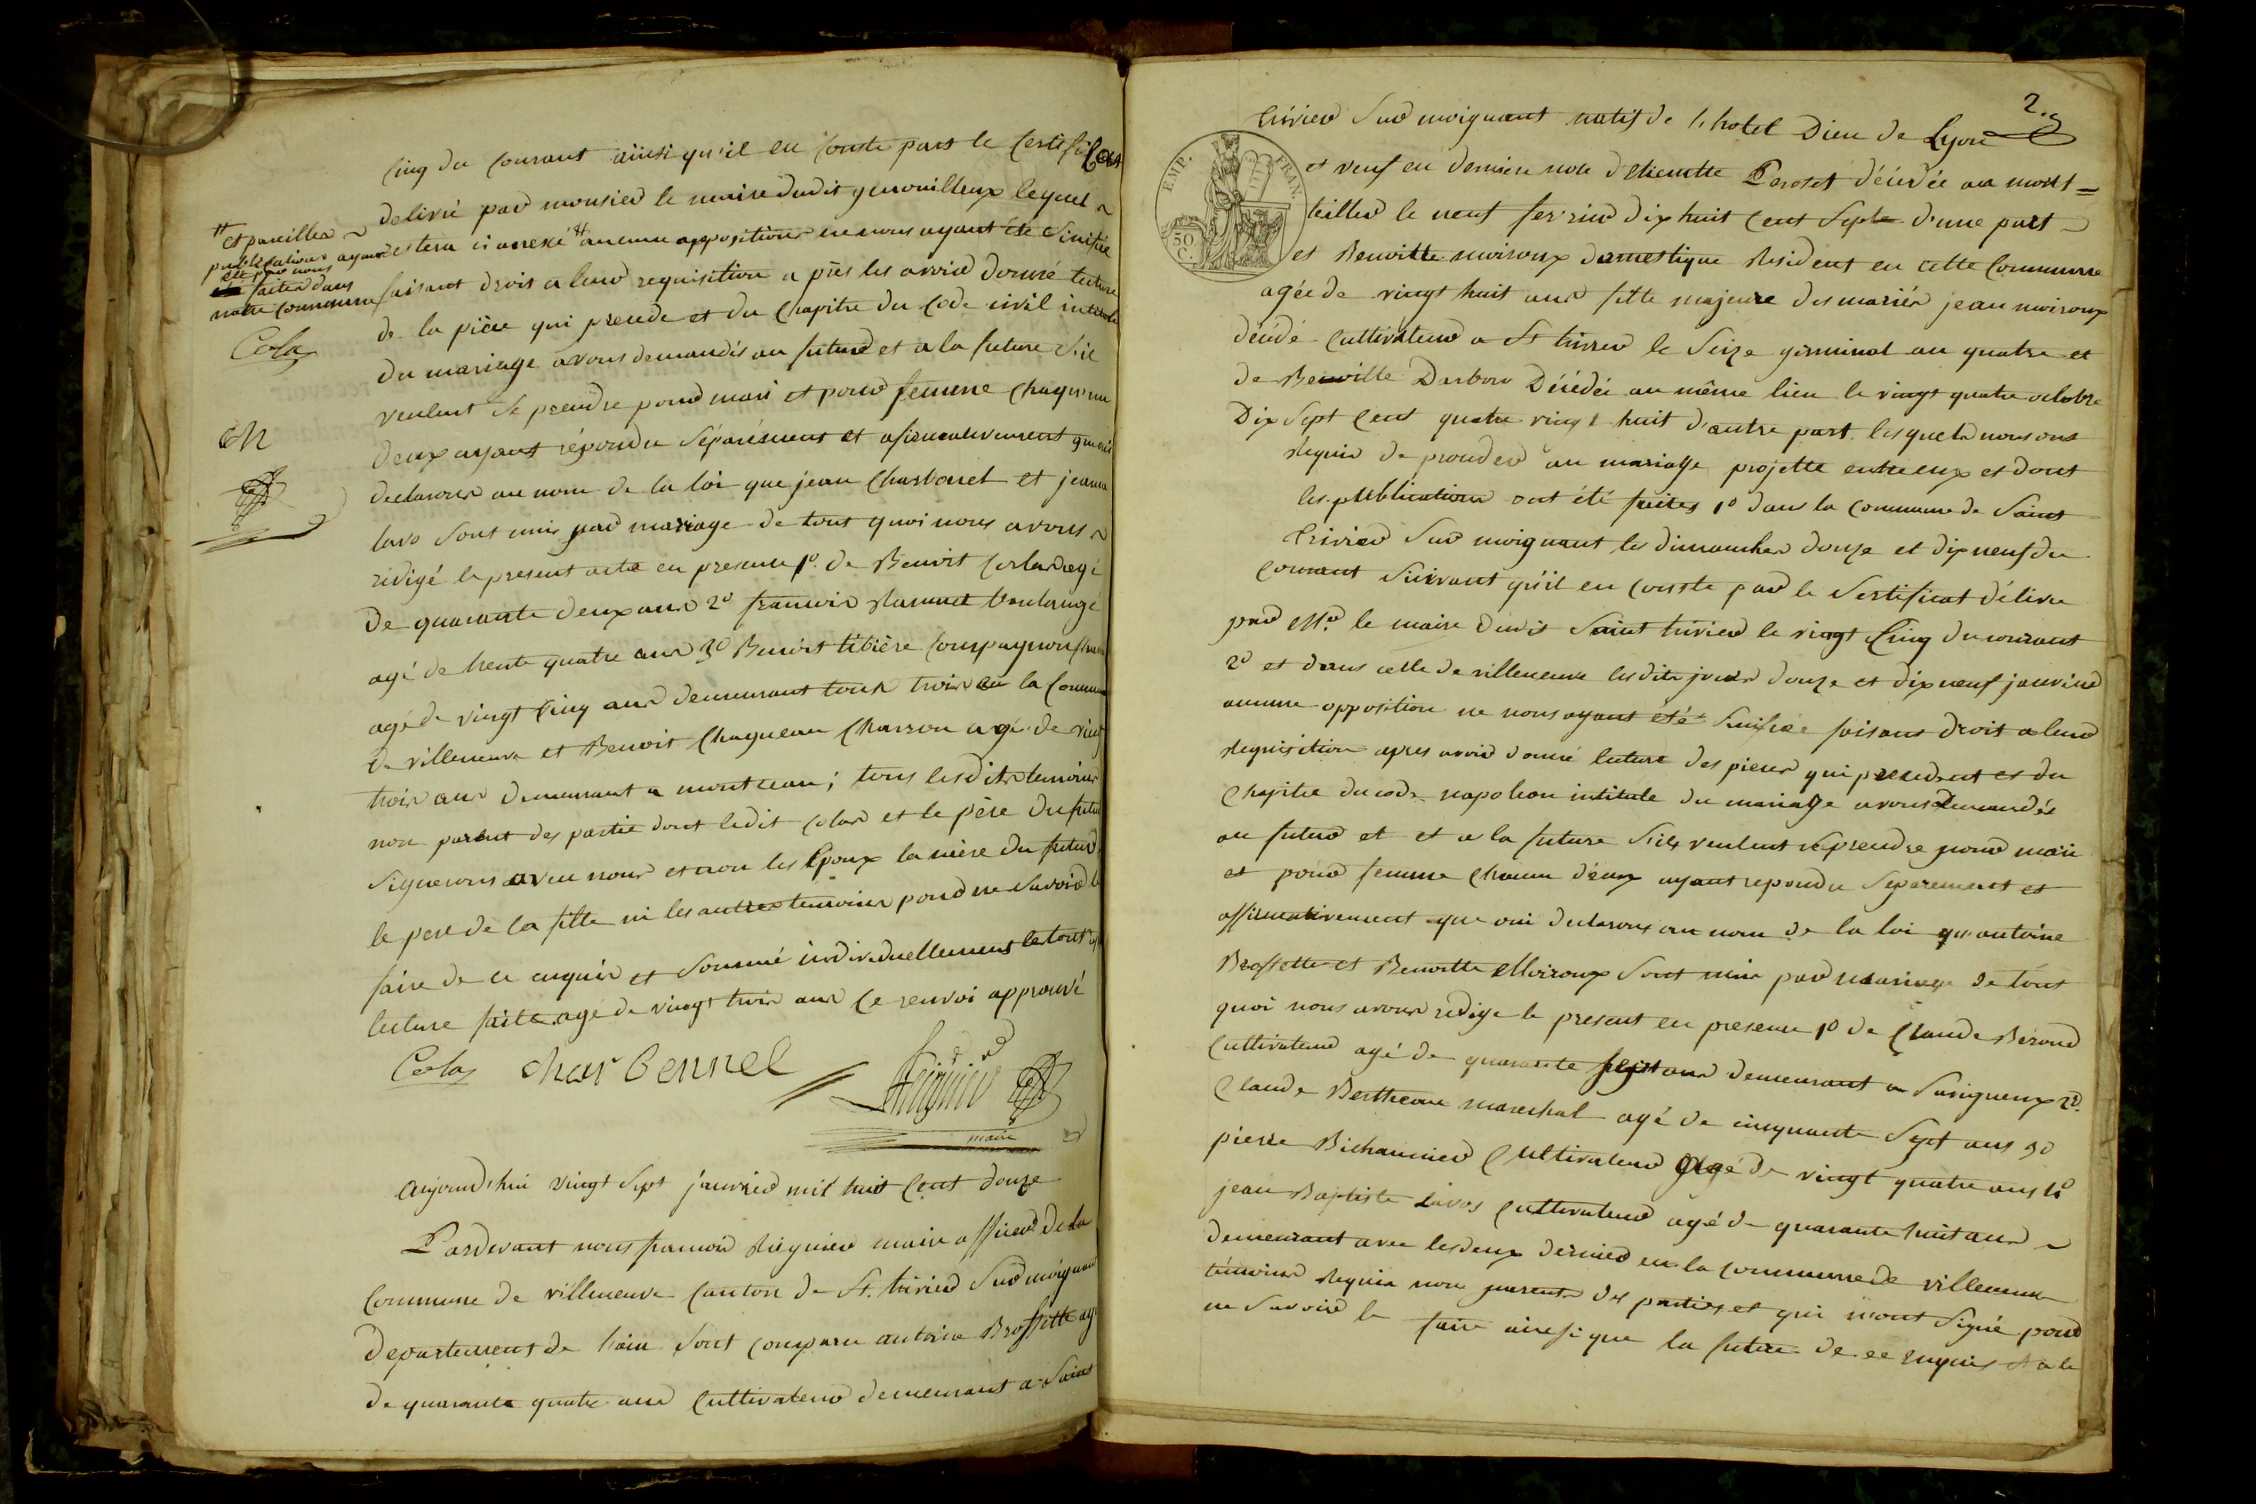 cinq du courant ainsi qu'il en conste part le certificat
delivré par monsieur le maire dudit genouilleux lequel
restera ci annexé # aucune apposition ne nous ayant été sinifiée
faisant droit a leur requisition a près les avoir donné lecture
de la pièce qui precede et du chapitre du code civil intitulé
du mariage avons demandés au futur et a la future s'il
veulent se prendre pour mari et pour femme chaqu'un
deux ayant répondu séparément et afirmativement que oui
declarons au nom de la loi que jean Charbonet et jeanne
lavo sont unis par mariage de tout quoi nous avons
rédigé le present acte en presence 1º. de Benoit Colas agé
de quarante deux ans 2º francois boulangé
agé de trente quatre ans 3º Benoist tibière compagnon
agé de vingt cinq ans demeurant tous trois en la commune
de villeneuve et Benoit Chaquean Charron agé de vingt
trois ans demeurant a montceau; tous lesdits temoins
non parent des partie dont ledit Colas et le père du futur
signerons avec nous et non les Epoux la mère du futur
le pere de la fille ni les autres temoins pour ne savoir le
faire de ce enquis et sommé individuellement le tout
lecture faite agé de vingt trois ans ce renvoi approuvé
Colas charbennel
maire
# et pareilles
publications ayant
été par nous
faites dans
notre commune
Colas
Ch
Aujourd'hui vingt sept janvier mil huit cent douze
Pardevant nous francois Réguier maire officier de la
commune de villeneuve canton de St. trivier sur moignant
departement de l'ain sont comparu antoine Brossette agé
de quarante quatre ans cultivateur demeurant a Saint
2.
trivier sur moignant natif de l'hotel Dieu de Lyon
et veuf en derniere note d'etiennette Peroset décédée au mont=
teillier le neuf fevrier dix huit cent sept d'une part
et Benoitte moiroux domestique Résident en cette Commune
agée de vingt huit ans fille majeure des mariés jean moiroux
décédé cultivateur a St trivier le Seize germinal an quatre et
de Benoitte Darbon Décédée au même lieu le vingt quatre octobre
Dix sept cent quatre vingt huit d'autre part lesquels nous ons
requis de proceder au mariage projette entre eux et dont
les publications ont été faites 1º dans la commune de Saint
trivier sur moignant les dimanches douze et dix neuf du
courant suivant qu'il en conste par le Sertificat délivré
par Mr. le maire dudit Saint trivier le vingt cinq du courant
2º et dans celle de villeneuve lesdits jours douze et dix neuf janvier
aucune opposition ne nous ayant été sinifiée faisant droit a leur
Requisition apres avoir donné lecture des pieces qui precedent et du
chapitre du code napoleon intitulé du mariage avons demandés
au futur et et a la future s'ils veulent se prendre pour mari
et pour femme chacun d'eux ayant repondu separement et
affirmativement que oui declarons au nom de la loi qu'antoine
Brossette et Benoitte Moiroux sont unis par mariage de tout
quoi nous avons rédigé le present en presence 1º de Claude Béroud
cultivateur agé de quarante sept ans demeurant a Savigneux 2º.
Claude Bertheau marechal agé de cinquante sept ans 3º
pierre Bichaunier cultivateur agé de vingt quatre ans 4º
jean Baptiste lavos cultivateur agé de quarante huit ans
demeurant avec les deux dernier en la commune de villeneuve
témoins Requis non parents des parties et qui n'ont signé pour
ne savoir le faire ainsi que la future de ce enquis et a le
EMP. FRAN.
50
C.